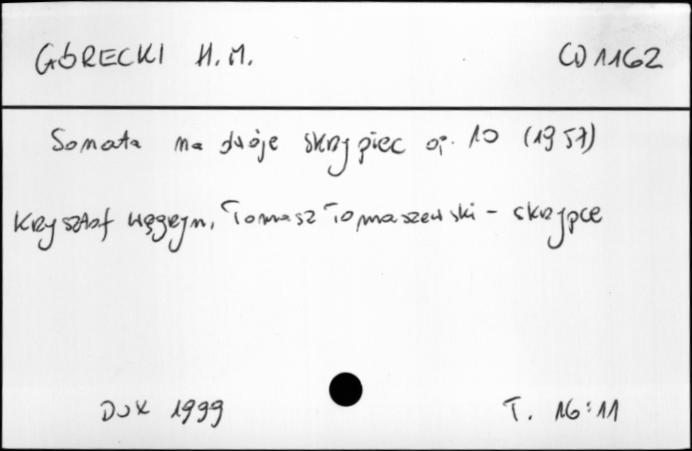 GÓRECKI H. M.
CD 1162
Sonata na dwoje skrzypiec op. 10 (1957)
Krzysztof Węgrzyn, Tomasz Tomaszewski - skrzypce
DUX 1999
T. 16:11